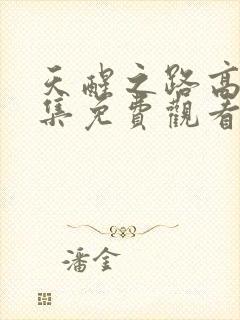 天醒之路高
集免費觀看
潘金